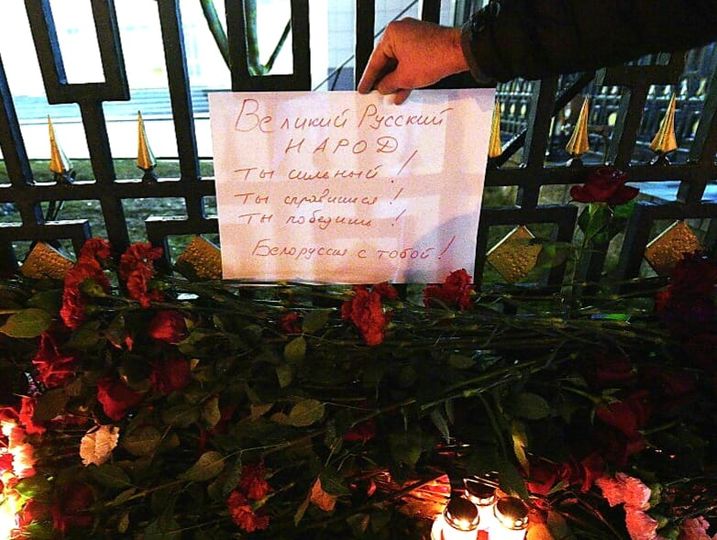 Великий Русский
НАРОД
Ты сильный!
Ты справишься!
Ты победишь!
Белоруссия с тобой!